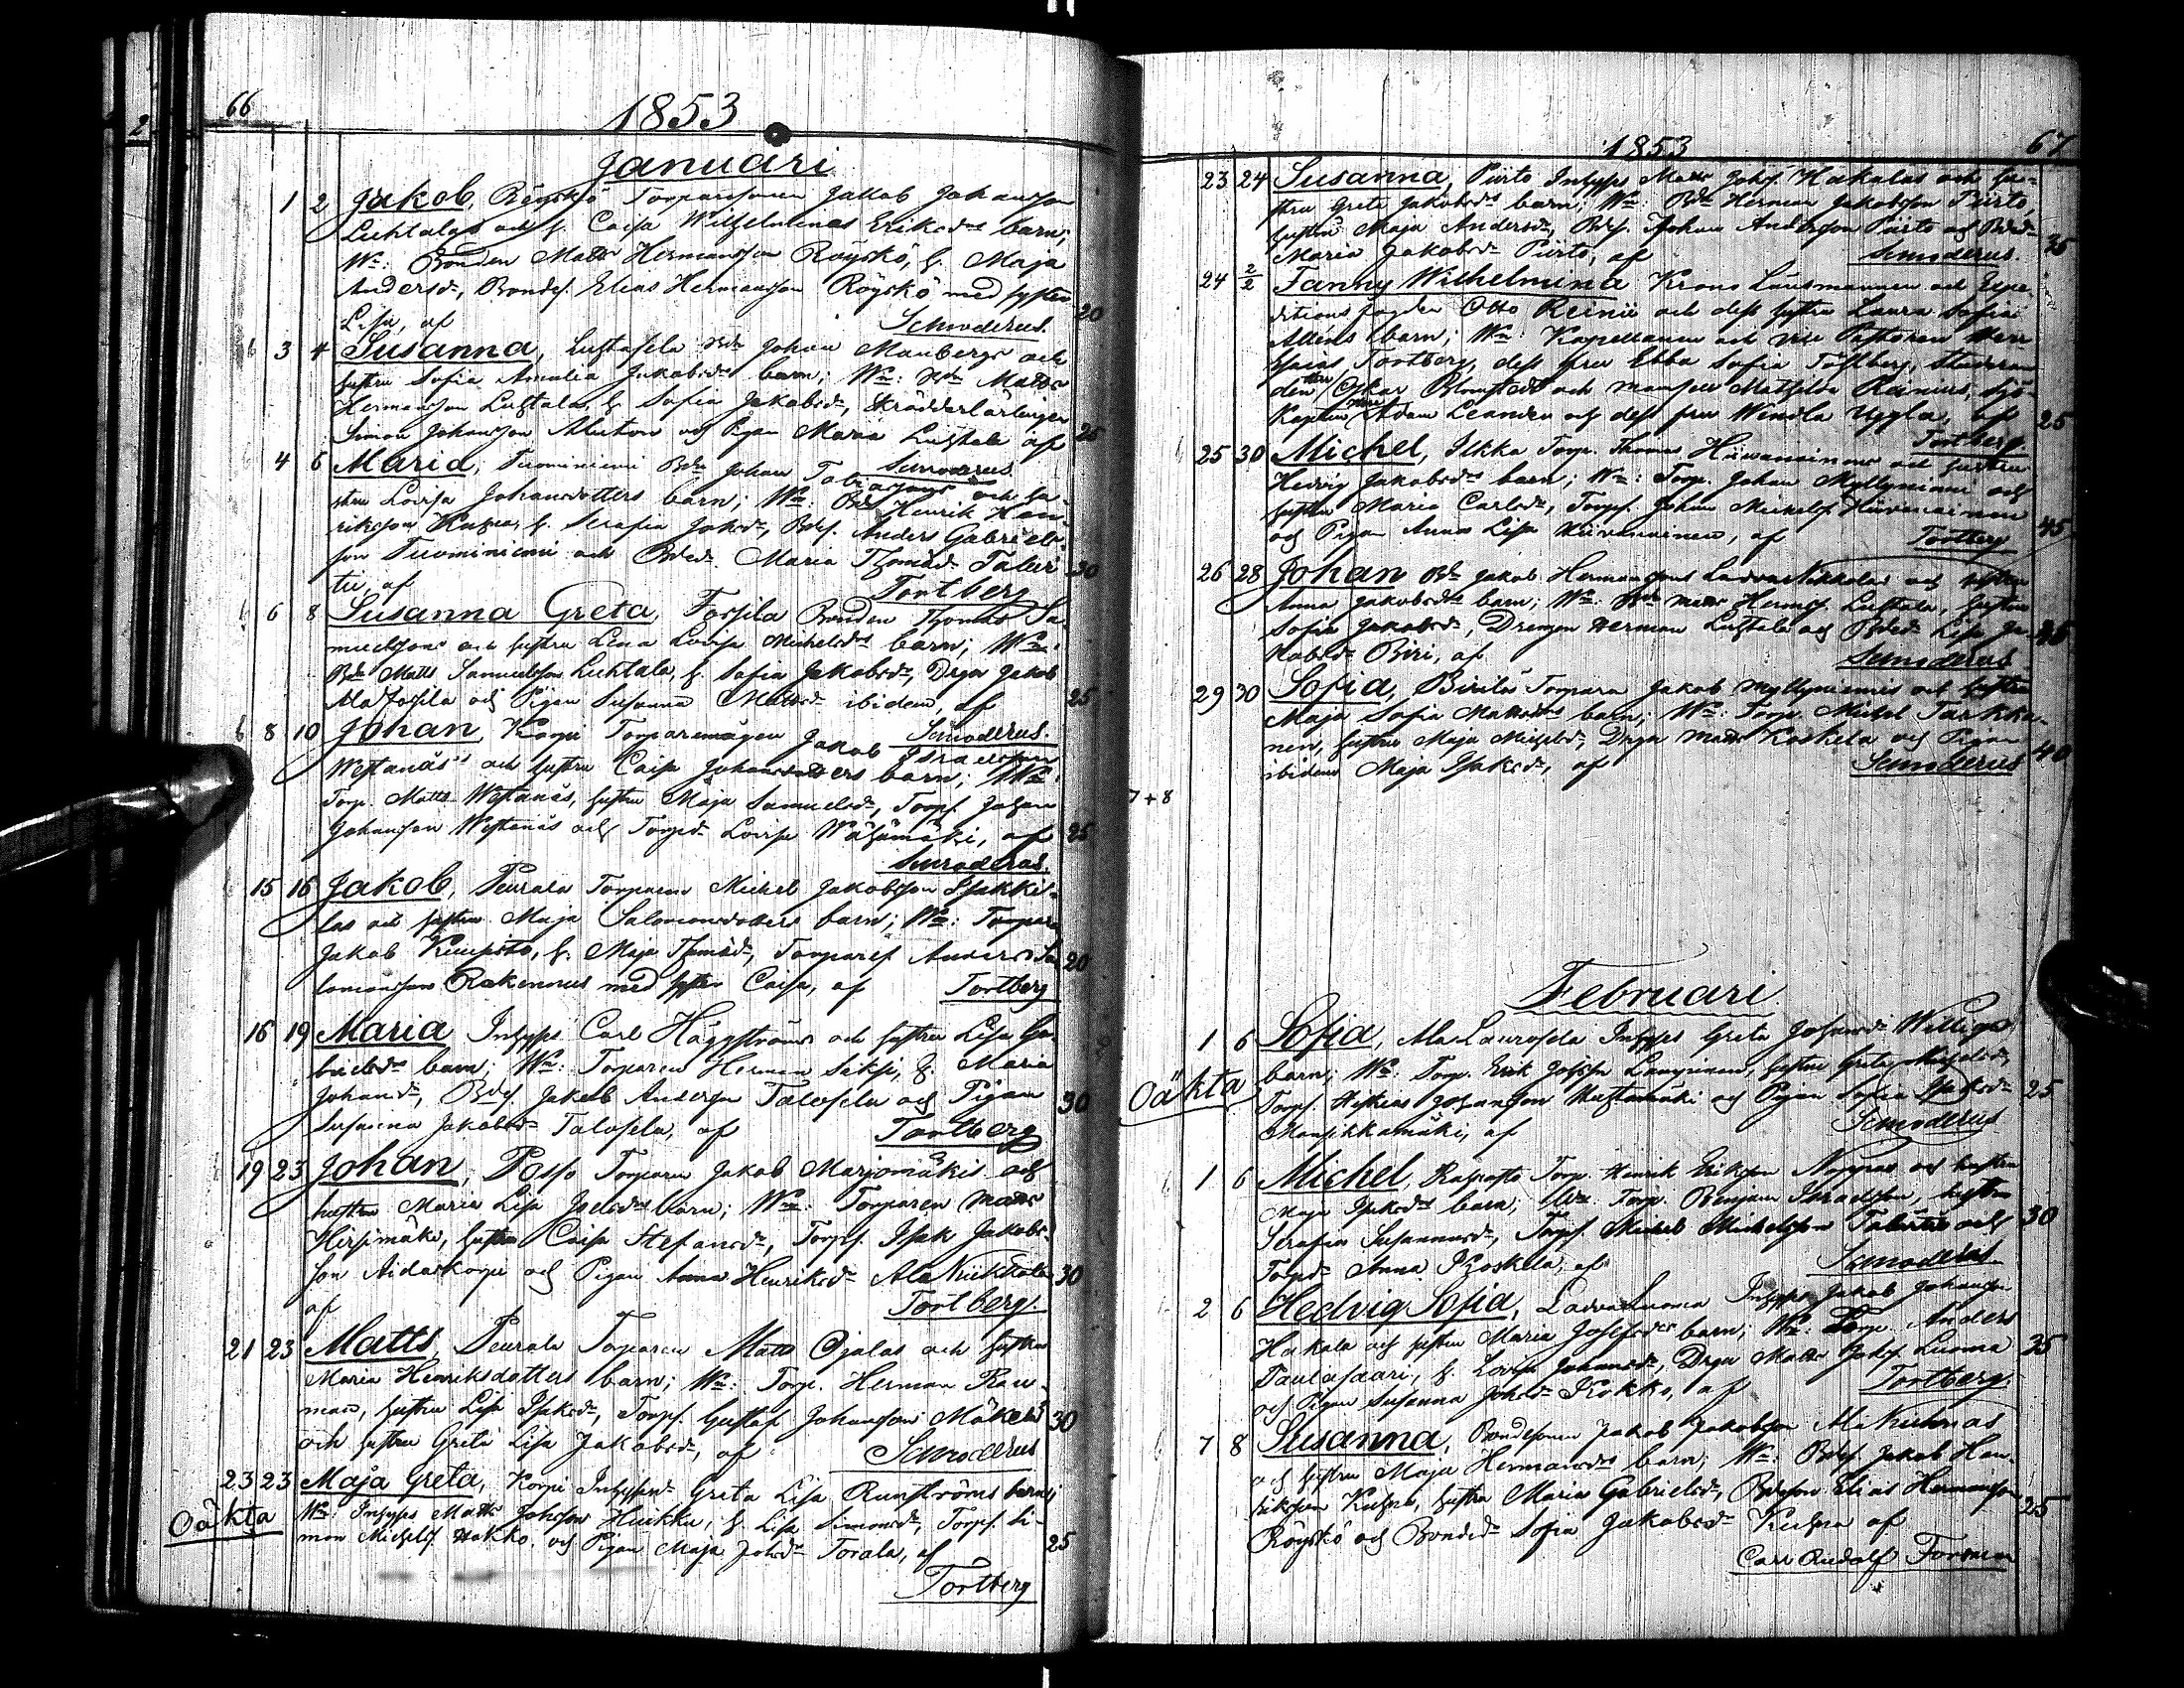 66
1853
Januari
1 2 Jakob, Röyskö Torparesonen Jakob Johansson
Luhtalas och h. Caisa Wilhelminas Eriksdrs barn;
Wn: Bonden Matts Hermansson Röyskö, h. Maja
Andersdr, Bondes. Elias Hermansson Röyskö med hustru 20
Lisa, af Schroderus.
3 4 Susanna, Luhtasela Bdn Johan Manbergs och
hustru Sofia Amalia Jakobsdrs barn; Wn: Bdn Matts
Hermansson Luhtala, h. Sofia Jakobsdr, Skräddarlärlingen
Simon Johansson och Pigan Maria Luhtala af 25
Schroderus
4 6 Maria, Tuominiemi Bdn Johan Tobiassons och hu-
stru Lovisa Johansdotters barn; Wn: Bdn Henrik Hen-
riksson h. Serafia Johsdr, Bdes. Anders Gabriels-
son Tuominiemi och Bdedr. Maria Thomasdr 30
af Tortberg
6 8 Susanna Greta, Torsila Bonden Thomas Sa-
muelssons och hustru Lena Lovisa Michelsdrs barn; Wn:
Bdn Matts Samuelsson Luhtala, h. Sofia Jakobsdr, Drgn Jakob
Ala Torsila och Pigan Susanna Mattsdr ibidem, af 25
Schroderus.
8 10 Johan, Korpi Torparemågen Jakob Israelsson
Westanäs's och hustru Caisa Johansdotters barn; Wn:
Torp. Matts Westanäs, hustru Maja Samuelsdr, Torps. Johan
Johansson Westanäs och Torpdr Lovisa Wähämäki, af 25
Schroderus.
15 16 Jakob, Peurala Torparen Michel Jakobsson
las och hustru Maja Salomonsdotters barn; Wn: Torparen
Jakob h. Maja Thomasdr, Torpares. Anders Sa- 20
lomonsson Rakennus med hustru Caisa, af Tortberg
16 19 Maria Inhyses Carl Häggströms och hustru Lisa Ga-
brielsdrs barn; Wn: Torparen Herman h. Maria
Johansdr, Bdes. Jakob Andersson Talosela och Pigan 30
Susanna Jakobsdr Talosela, af Tortberg
19 23 Johan, Posso Torparen Jakob Marjomäkis och
hustru Maria Lisa Joelsdrs barn; Wn: Torparen Matts
Hirsimäki, hustru Caisa Stefansdr, Torps. Isak Jakobs-
son och Pigan Anna Henriksdr Ala Nikkola 30
af Tortberg.
21 23 Matts, Peurala Torparen Matts Ojalas och hustru
Maria Henriksdotters barn; Wn: Torp. Herman Rau-
man, hustru Lisa Isaksdr, Torps. Gustaf Johansson Mäkelä 30
och hustru Greta Lisa Jakobsdr, af Schroderus
23 23 Maja Greta, Korpi Inhysesdr Greta Lisa Runströms barn;
Oäkta Wn: Inhyses Matts Johsson Huikku, h. Lisa Simonsdr, Torps. Si-
mon Michelss. Hakko och Pigan Maja Johsdr Torala, af 25
Tortberg
1853 67
23 24 Susanna, Piirto Inhyses Matts Johs. Hakalas och hu-
stru Greta Jakobsdrs barn; Wn: Bdn Herman Jakobsson Piirto,
hustru Maja Andersdr, Bdes. Johan Andersson Piirto och Bdedr 35
Maria Jakobsdr Piirto, af Schroderus.
24 2/2 Fanny Wilhelmina Krono Länsmannen och Expe-
ditions fogden Otto Reinii och dess hustru Laura Sofia
barn; Wn: Kapellanen och vice Pastoren
Tortberg, dess fru Ebba Sofia Studeran-
den Oskar Blomstedt och mamsell Mathilda Reinius, Sjö-
Kapten Adam Leander och dess fru Wendla Uggla, af 25
Tortberg.
25 30 Michel, Ilkka Torp. Thomas Hiivanainens och hustru
Hedvig Jakobsdrs barn; Wn: Torp. Johan Myllyniemi och
hustru Maria Carlsdr, Torps. Johan Michelss. Hiivanainen
och Pigan Anna Lisa Hiivanainen, af Tortberg 45
26 28 Johan Bdn Jakob Hermanssons Ladva Nikkolas och hustru
Anna Jakobsdrs barn; Wn: Bdn Matts Hermss. Luhtala, hustru
Sofia Jakobsdr, Drengen Herman Luhtala och Bdedr Lisa Ja- 45
kobsdr Biri, af Schroderus
29 30 Sofia, Birilä Torparen Jakob Myllyniemis och hustru
Maja Sofia Mattsdrs barn; Wn: Torp. Michel Tarkka-
nen, hustru Maja Michelsdr, Drgn Matts Koskela och Pigan 40
ibidem Maja Isaksdr, af Schroderus
7+8
Februari
1 6 Sofia, Ala Laurosela Inhyses Greta Johansdr
Oäkta barn; Wn: Torp. Erik Johsson hustru Greta Michelsdr, 25
Torps. Johansson och Pigan Sofia Isaksdr
Mansikkamäki, af Schroderus
1 6 Michel, Torp. Henrik Eriksson Noppas och hustru
Maja Isaksdrs barn; Wn: Torp. Benjam Israelsson, hustru
Serafia Susannasdr, Torps. Michel Michelsson och 30
Torpdr Anna Koskela, af Schroderus
2 6 Hedvig Sofia, Ladva Luoma Inhyses Jakob Johansson
Hakala och hustru Maria Josefsdrs barn; Wn: Torp. Anders
Paulasaari, h. Lovisa Johansdr, Drgn Matts Johss. Luoma 35
och Pigan Susanna Johsdr Kokko, af Tortberg.
7 8 Susanna, Bondesonen Jakob Jakobsson Ala
och hustru Maja Hermansdrs barn; Wn: Bdes. Jakob Hen-
riksson hustru Maria Gabrielsdr, Bdeson Elias Hermansson 25
Röyskö och Bondedr Sofia Jakobsdr af
Carl Rudolf Forsman